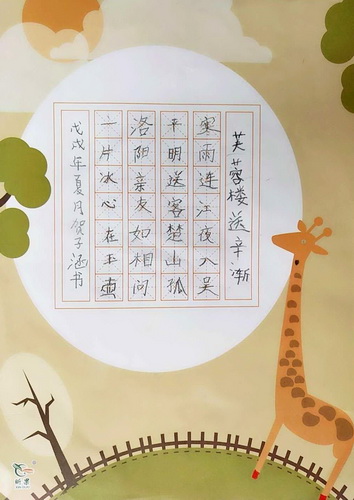 芙蓉楼送辛渐
寒雨连江夜入吴
平明送客楚山孤
洛阳亲友如相问
一片冰心在玉壶
戊戌年夏月贺子涵书